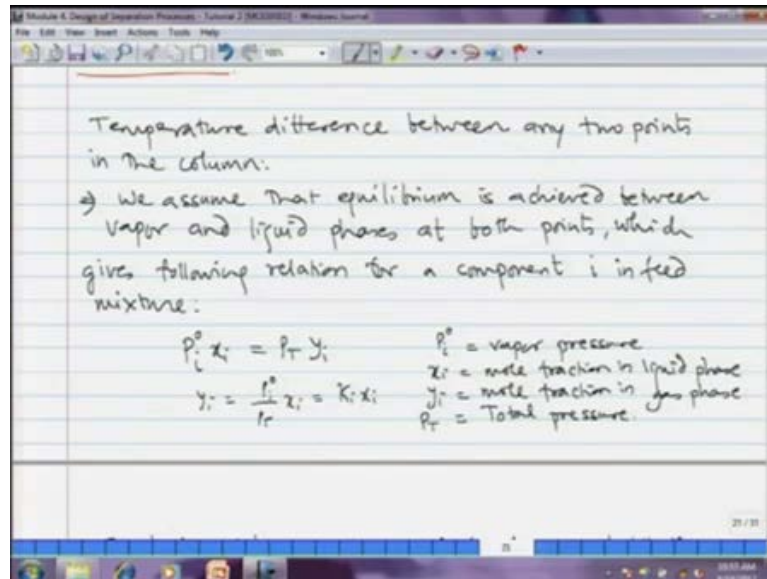 Module 4. Design of Separation Processes - Tutorial 2 - Windows Journal
File Edit View Insert Actions Tools Help
Temperature difference between any two points
in the column:
⇒ We assume that equilibrium is achieved between
vapor and liquid phases at both points, which
gives following relation for a component i in feed
mixture:
P°i xi = PT yi P°i = vapor pressure
xi = mole fraction in liquid phase
yi = P°i/PT xi = Ki xi yi = mole fraction in gas phase
PT = Total pressure.
21/31
10:55 AM